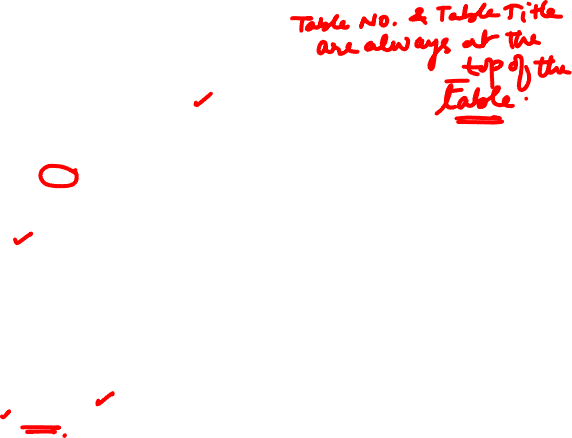 Table No. & Table Title
are always at the
top of the
Table.